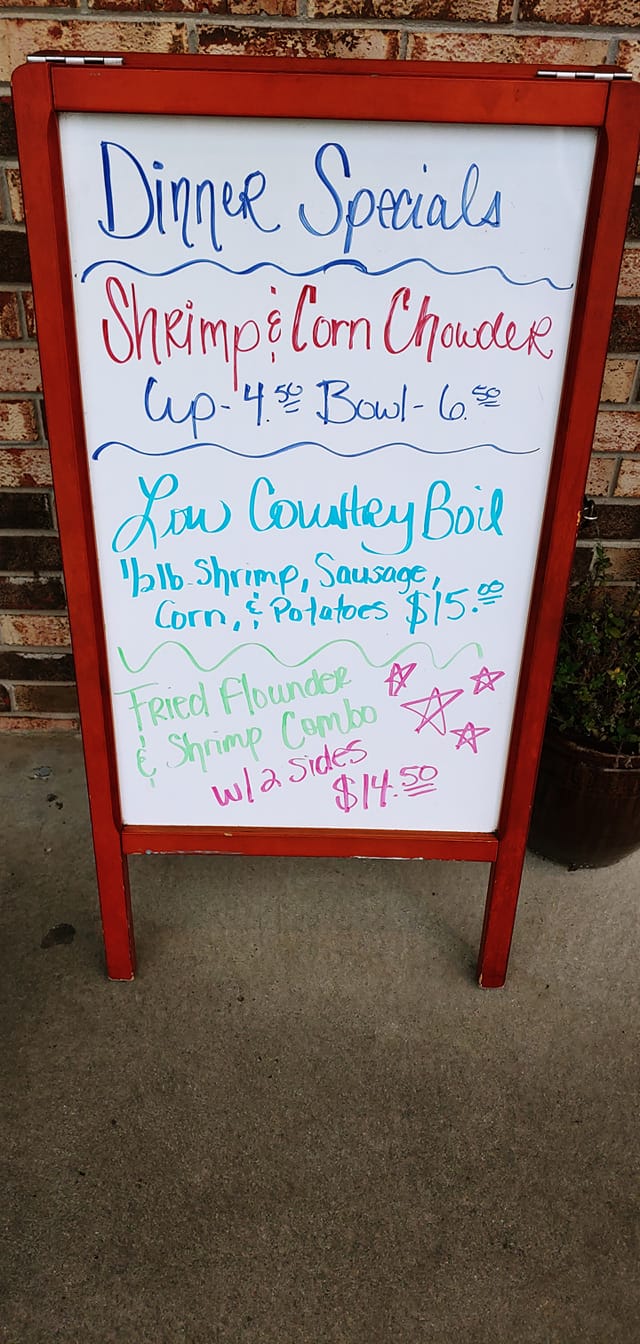 Dinner Specials
Shrimp & Corn Chowder
Cup - 4.50 Bowl - 6.50
Low Country Boil
1/2 lb. Shrimp, Sausage,
Corn, & Potatoes $15.00
Fried Flounder
& Shrimp Combo
w/ 2 sides
$14.50